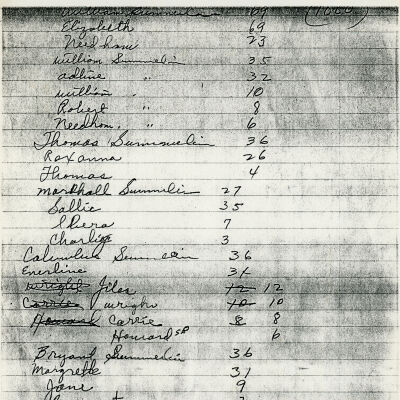 William Summerlin 69 (1860)
Elizabeth 69
Needham 23
William Summelin 35
adline " 32
William " 10
Robert " 8
Needhom. " 6
Thomas Summelin 36
Roxanna 26
Thomas 4
Marshall Summelin 27
Sallie 35
7
Charlie 3
Columbus Summelin 36
Enerline 31
Wright Jiles 12 12
Carrie Wright 10 10
Howard Carrie 8 8
Howard 6
Bryant Summelin 36
Margrette 31
Jane 9